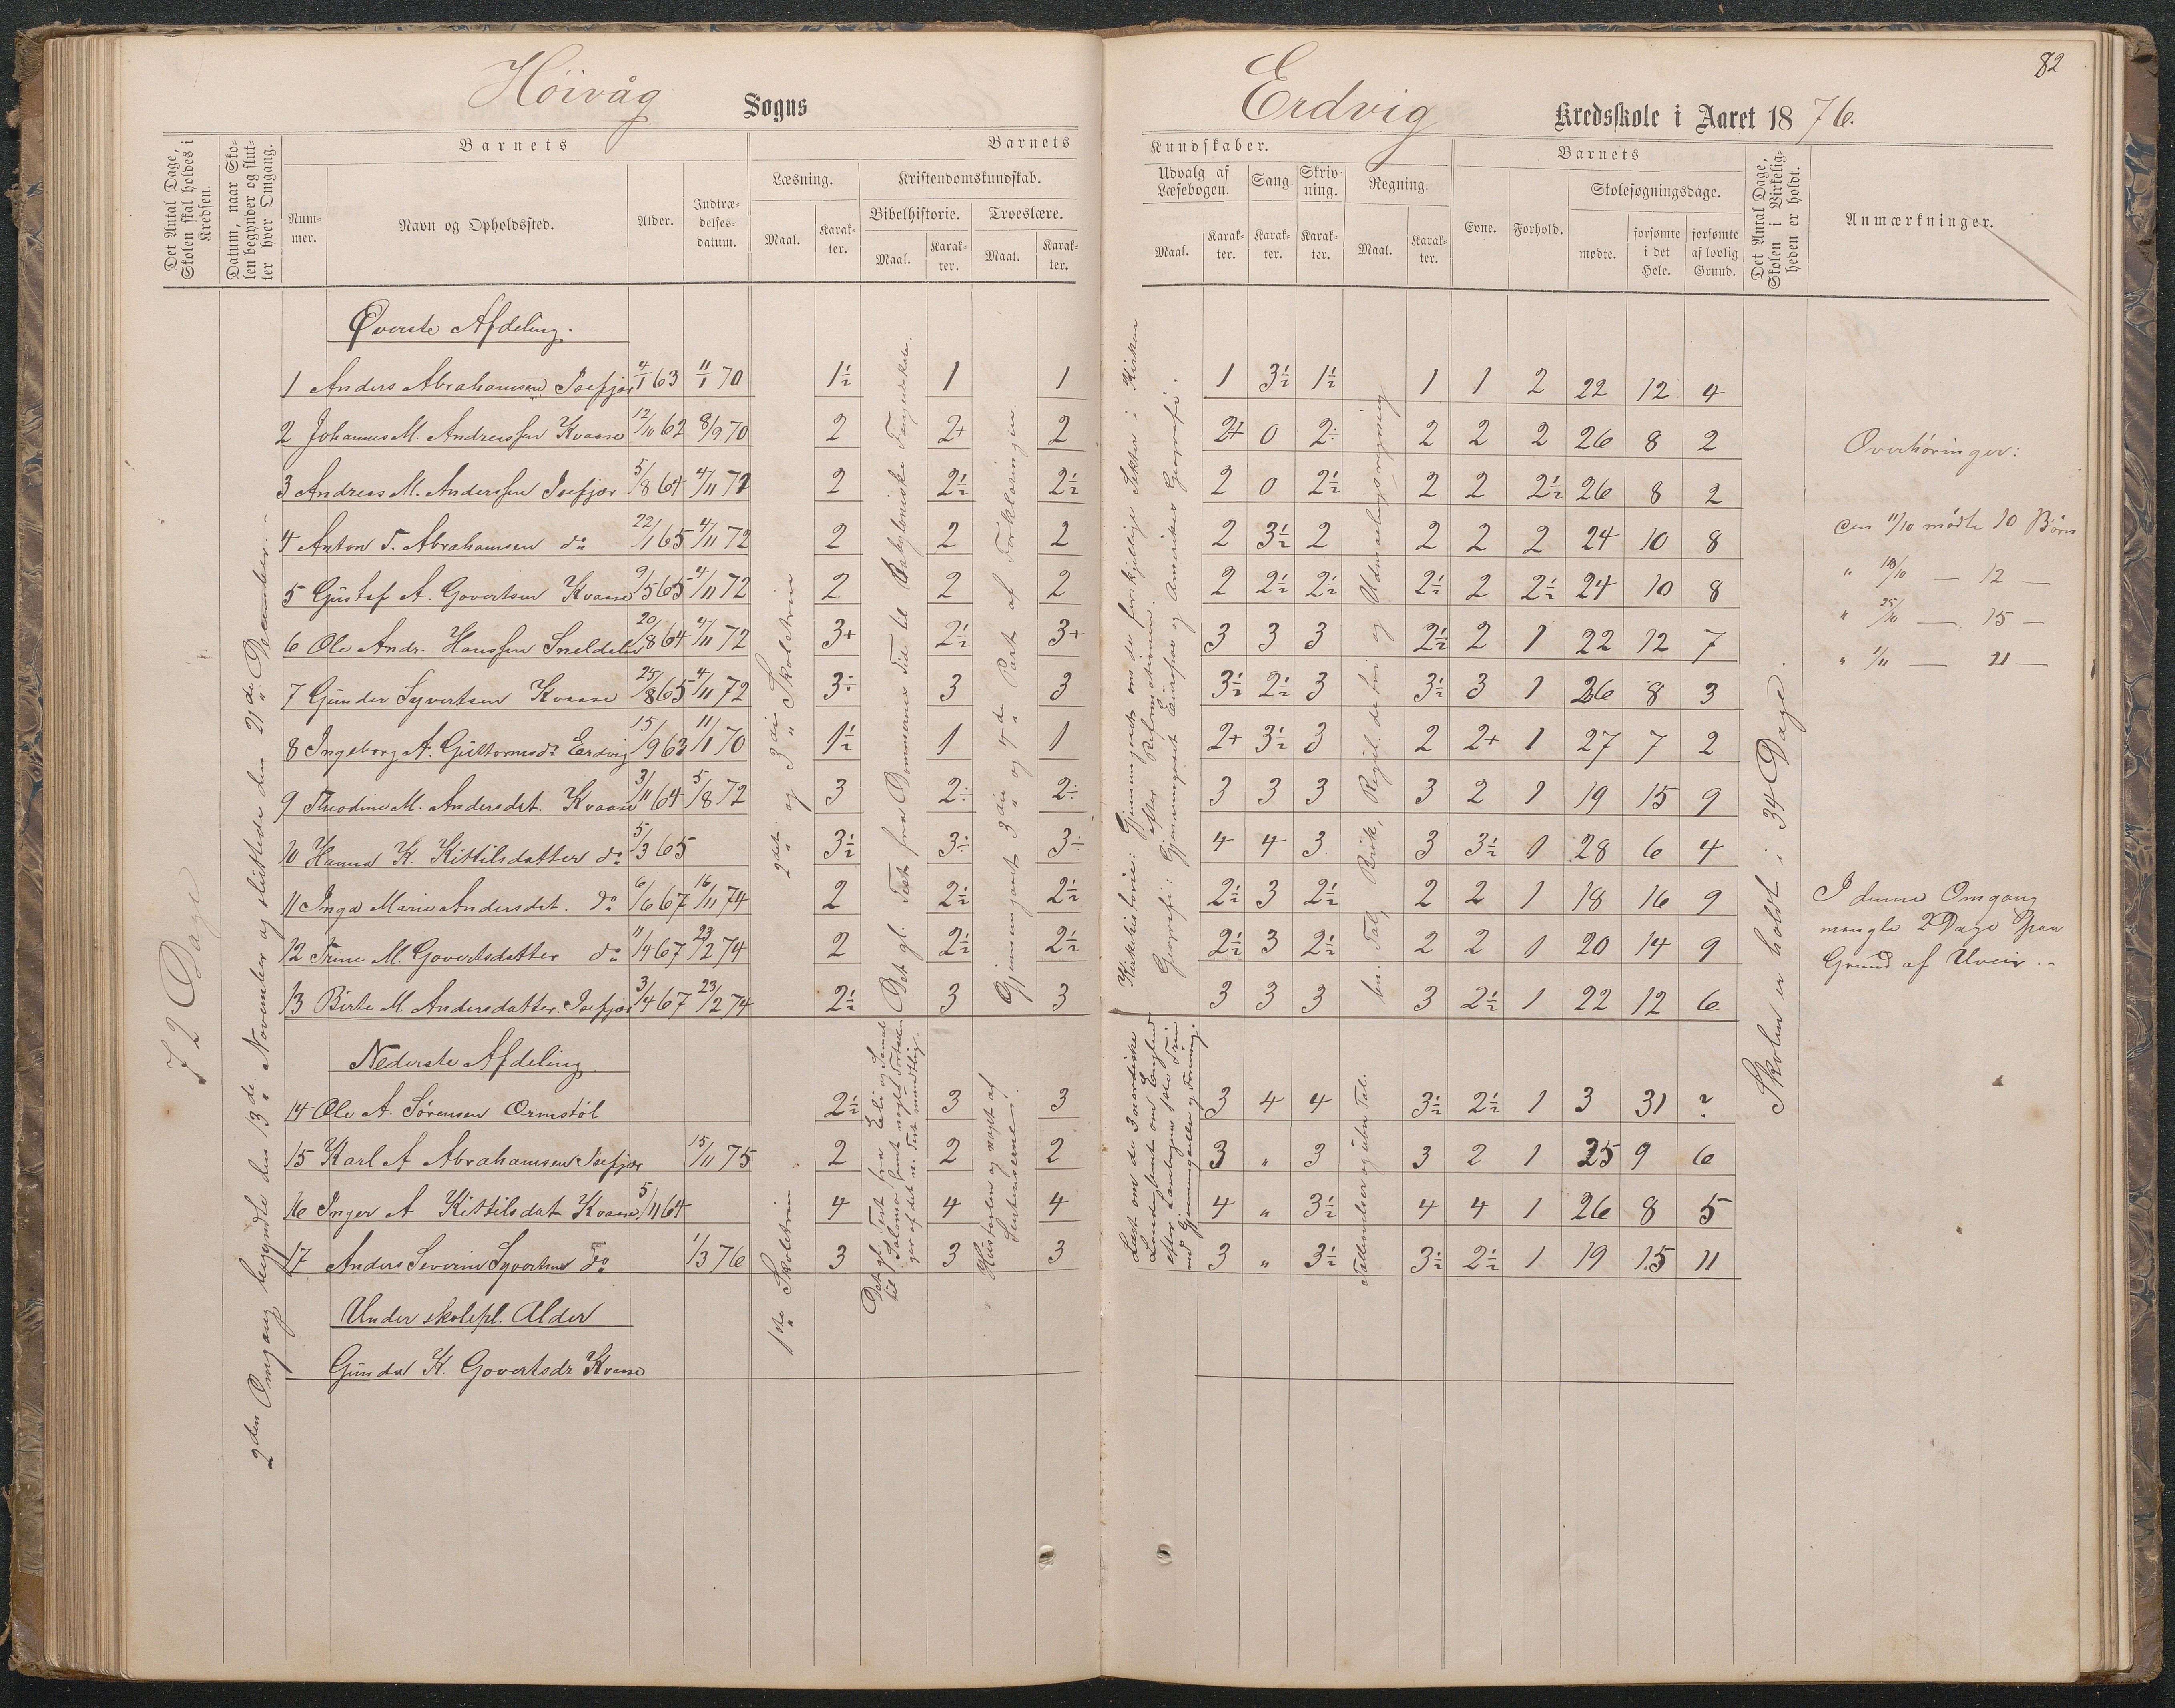 82
Höivåg Sogns
Erdvig Kredsskole i Aaret 1876.
Det Antal Dage, Skolen skal holdes i Kredsen.
Datum, naar Skolen begynder og slutter hver Omgang.
Barnets
Nummer.
Navn og Opholdssted.
Alder.
Indtrædelsesdatum.
Barnets
Læsning.
Maal.
Karakter.
Kristendomskundskab.
Bibelhistorie.
Maal.
Karakter.
Troeslære.
Maal.
Karakter.
Kundskaber.
Udvalg af Læsebogen.
Maal.
Karakter.
Sang.
Karakter.
Skrivning.
Karakter.
Regning.
Maal.
Karakter.
Barnets
Evne.
Forhold.
Skolesøgningsdage.
mødte.
forsømte i det Hele.
forsømte af lovlig Grund.
Det Antal Dage, Skolen i Virkeligheden er holdt.
Anmærkninger.
72 Dage
2den Omgang begyndte den 13de November og sluttede den 21de December.
Øverste Afdeling.
1 Anders Abrahamsen Isefjær 4/1 63 11/1 70 1½ 1 1 1 3½ 1½ 1 1 2 22 12 4
2 Johannes M. Andreassen Kvaase 12/10 62 8/9 70 2 2+ 2 2+ 0 2÷ 2 2 2 26 8 2
3 Andreas M. Anderssen Isefjær 5/8 64 4/11 72 2 2½ 2½ 2 0 2½ 2 2 2½ 26 8 2
4 Anton T. Abrahamsen do 22/1 65 4/11 72 2 2 2 2 3½ 2 2 2 2 24 10 8
5 Gustaf A. Govertsen Kvaase 9/5 65 4/11 72 2 2 2 2 2½ 2½ 2½ 2 2½ 24 10 8
6 Ole Andr. Hanssen Sneldelen 20/8 64 4/11 72 3+ 2½ 3+ 3 3 3 2½ 2 1 22 12 7
7 Gunder Syvertsen Kvaase 25/8 65 4/11 72 3÷ 3 3 3½ 2½ 3 3½ 3 1 26 8 3
8 Ingeborg A. Guttormsdr Eardvig 15/9 63 11/1 70 1½ 1 1 2+ 3½ 3 2 2+ 1 27 7 2
9 Theodine M. Andersdat. Kvaase 3/11 64 5/8 72 3 2÷ 2÷ 3 3 3 3 2 1 19 15 9
10 Hanna K. Kittilsdatter do 5/3 65 3½ 3÷ 3÷ 4 4 3 3 3½ 1 28 6 4
11 Inga Marie Andersdat. do 6/6 67 16/11 74 2 2½ 2½ 2½ 3 2½ 2 2 1 18 16 9
12 Trine M. Govertsdatter do 11/4 67 23/2 74 2 2½ 2½ 2½ 3 2½ 2 2 1 20 14 9
13 Birte M. Andersdatter. Isefjær 3/4 67 23/2 74 2½ 3 3 3 3 3 3 2½ 1 22 12 6
Nederste Afdeling.
14 Ole A. Sørensen Ormstöl 2½ 3 3 3 4 4 3½ 2½ 1 3 31 ?
15 Karl A Abrahamsen Isefjær 15/11 75 2 2 2 3 " 3 3 2 1 25 9 6
16 Inger A Kittilsdat Kvaase 5/11 64 4 4 4 4 " 3½ 4 4 1 26 8 5
17 Anders Severin Syvertsen do 1/3 76 3 3 3 3 " 3½ 3½ 2½ 1 19 15 11
Under skolepl. Alder
Gunda K. Govertsdr Kvaase
2det og 3die Skoletrin
1ste Skoletrin
Det gl. Test. fra Dommernes Tid til Babyloniske Fangenskab.
Det gl. Test. fra Eli og Samuel
til Salomo
Gjennemgaaet 3die og 4de Part af Forklaringen.
Hustavlen og noget af
Sentenserne.
Kirkehistorie: Gjennemgaaet om de forskjellige Sekter i Kirken
efter Reformationen.
Geografi: Gjennemgaaet Europas og Amerikas Geografi.
Læst om de 3 nordiske
Lande samt om England
med Gjennemgaaelse
ben. Tal, Brøk, Regul. de tri og Udmaalingsregning
Skolen er holdt i 34 Dage.
Overhøringer:
den 11/10 mödte 10 Börn
" 18/10 — 12 —
" 25/10 — 15 —
" 1/11 — 11 —
I denne Omgang
mangle 2 Dage paa
Grund af Uveir.